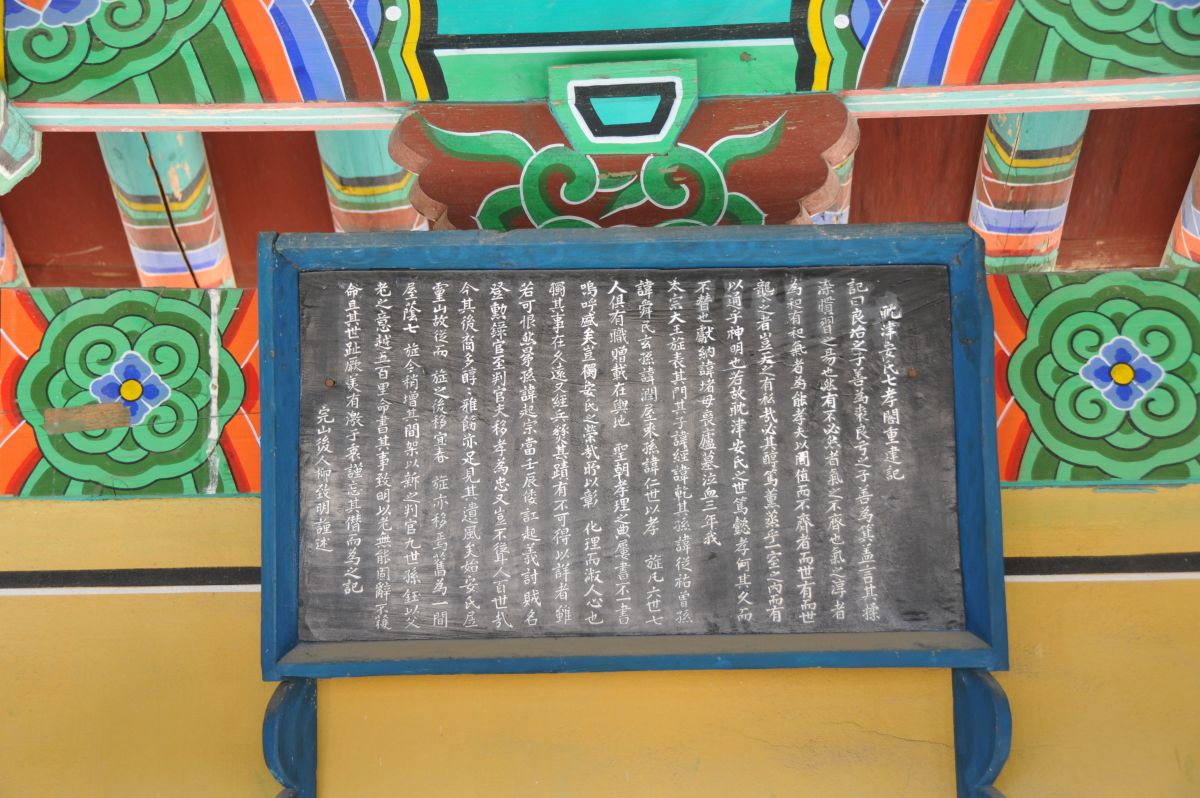 耽津安氏七孝閣重建記
記曰良冶之子善為裘良弓之子善為箕盖言其擩
染慣習之易也然有不必然者氣之不齊也氣之淳者
為和有和氣者為能孝夫以固值而不齊者而世有而世
觀之者豈天之有私哉以其醇篤薰蒸乎一室之內而有
以通乎神明也若故耽津安氏之世篤懿孝何其久而
不替也獻納諱堵母喪廬墓泣血三年我
太宗大王旌表其門其子諱經諱乾其孫諱從祐曾孫
諱舜民玄孫諱潤屋來孫諱仁世以孝 旌凡六世七
人俱有職贈載在輿地 聖朝孝理之典屢書不一書
嗚呼盛矣豈獨安氏之榮哉所以彰 化理而淑人心也
獨其事在久遠又經兵燹其蹟有不可得以詳者雖
若可恨然晜孫諱起宗當壬辰倭訌起義討賊名
登勳錄官至判官夫移孝為忠又豈不得人百世哉
今其後裔多醇雅飭亦足見其遺風矣始安氏居
霊山故後而 旌之後移宜春 旌亦移焉舊為一間
屋蔭七 旌今稍增其間架以新之判官九世孫鈺以父
老之意越五百里命書其事致明以老無能固辭不獲
命且其世趾厥美有激于衷謹忘其僭而為之記
完山後人柳致明謹述